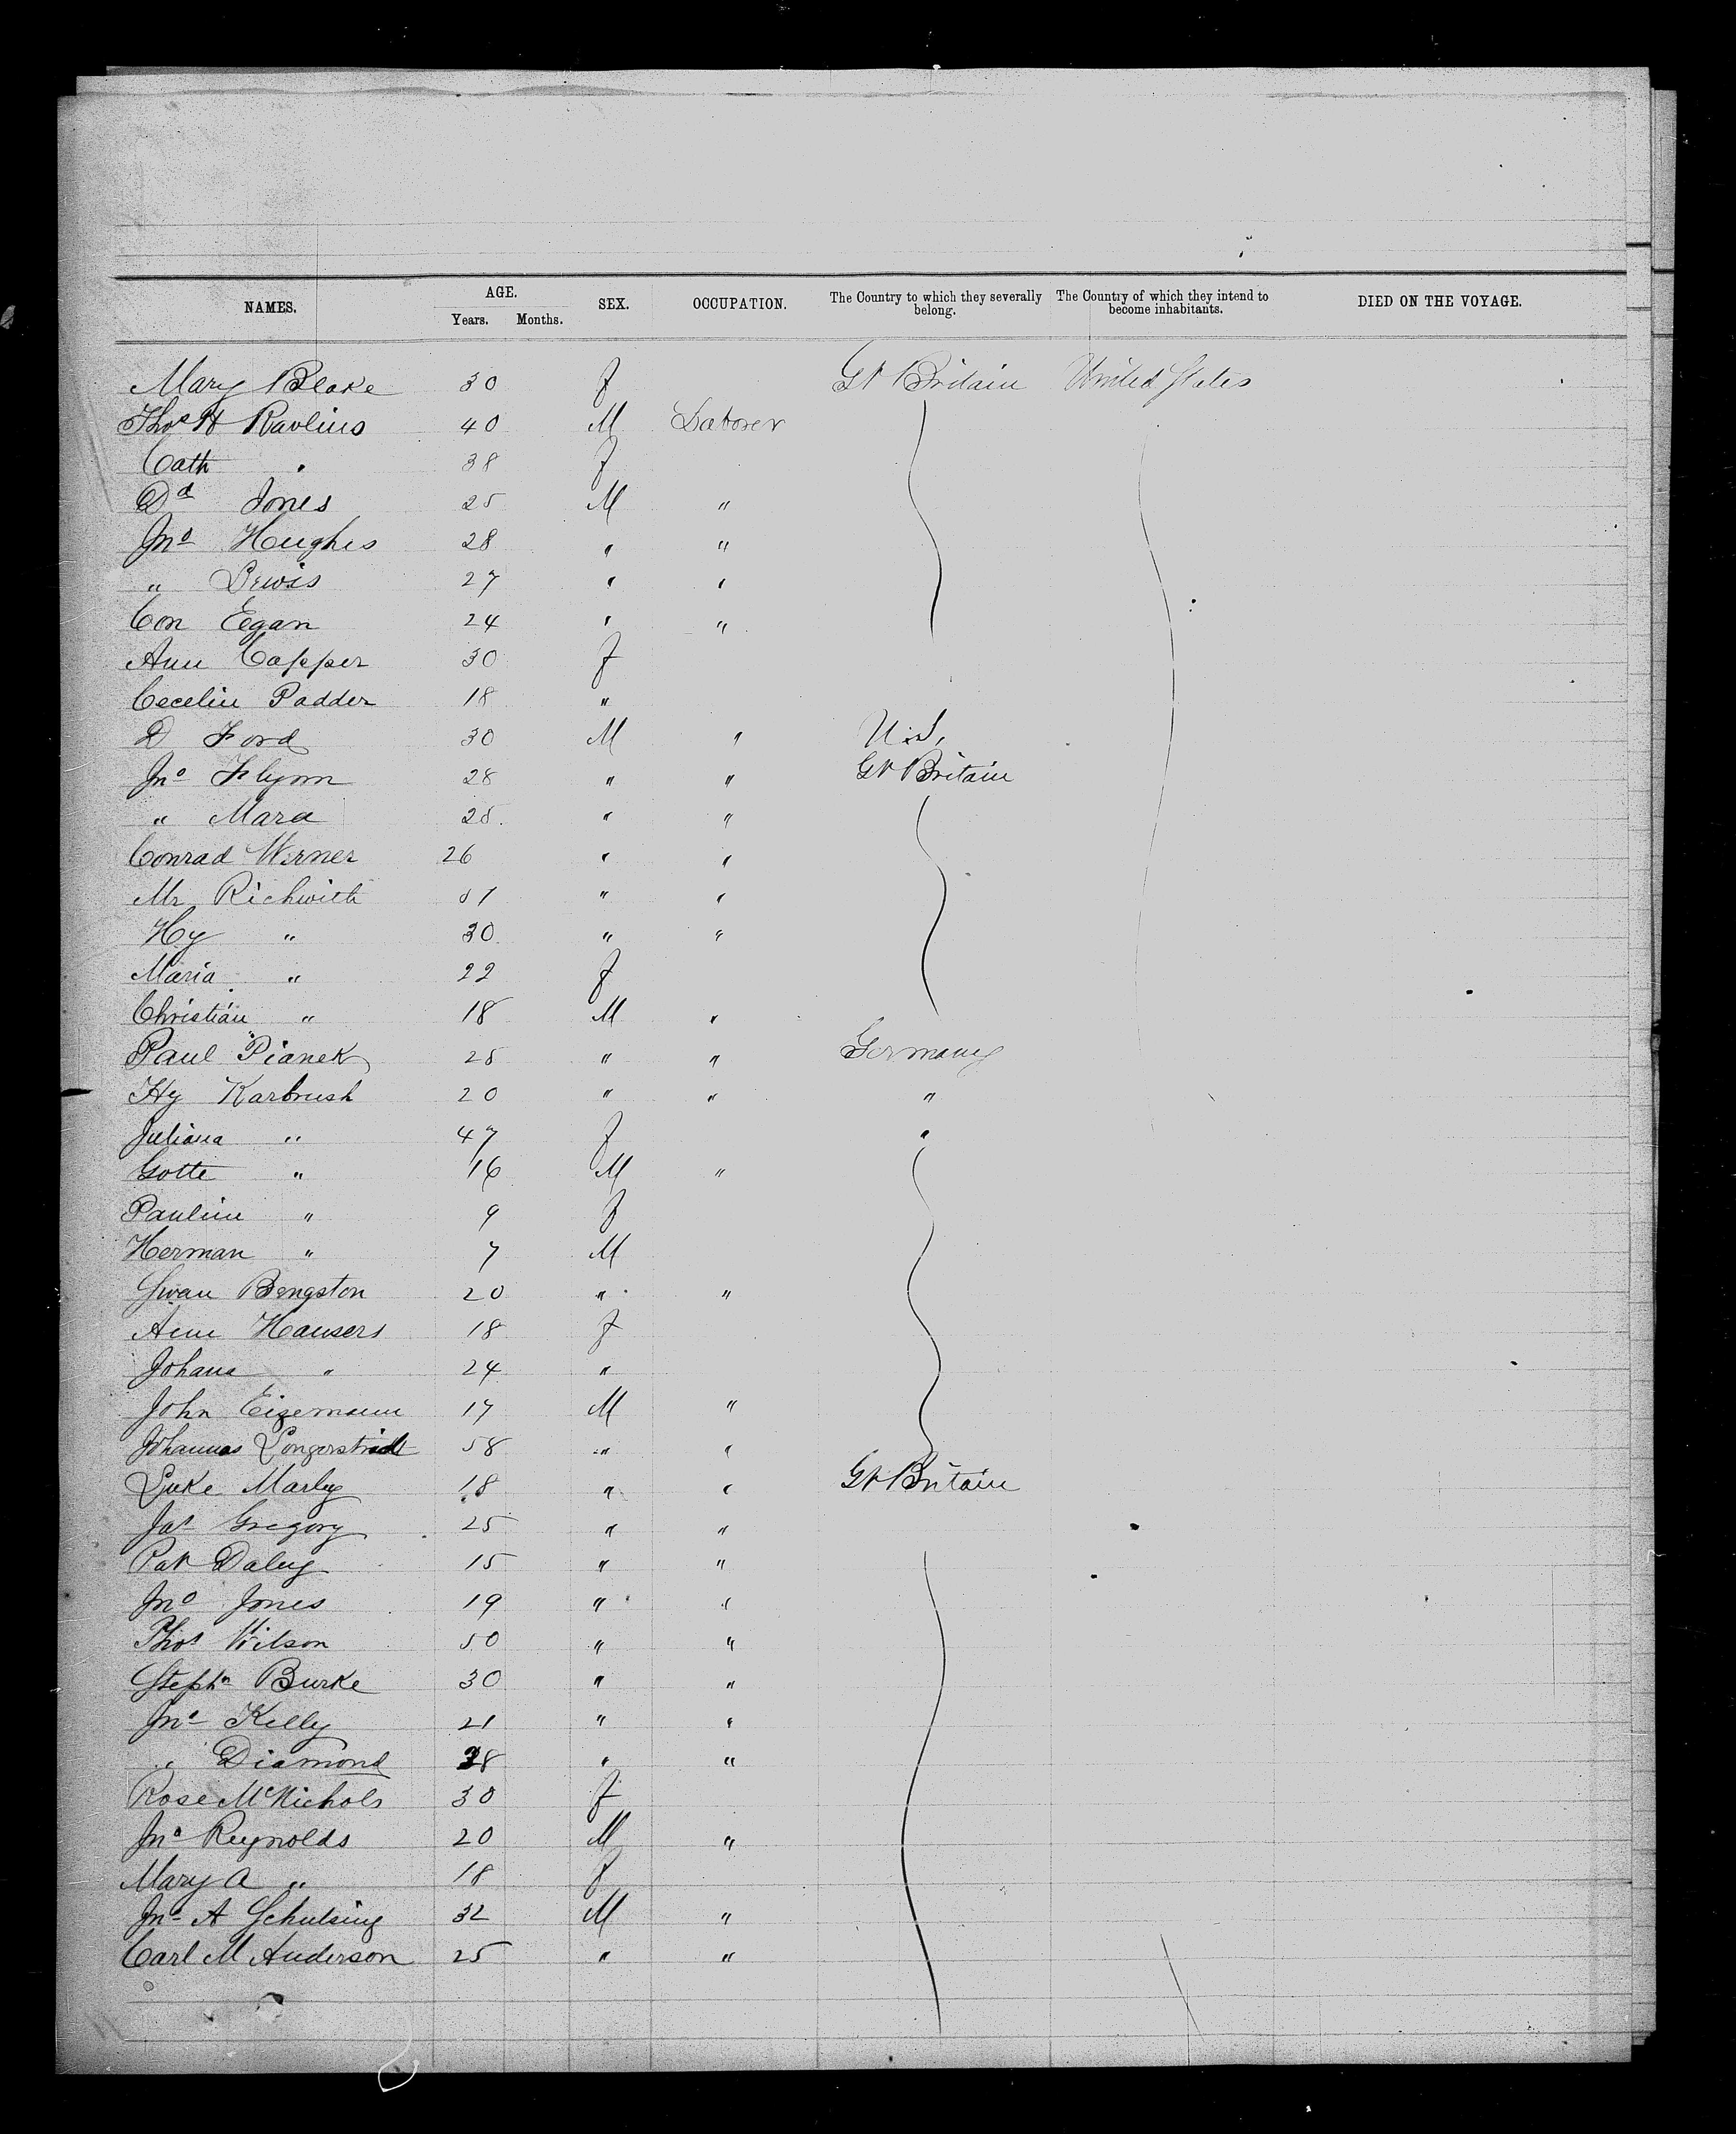 NAMES. AGE. Years. Months. SEX. OCCUPATION. The Country to which they severally belong. The Country of which they intend to become inhabitants. DIED ON THE VOYAGE.
Mary Blake 30 f Gt Britain United States
Thos H Ravlins 40 M Laborer
Cath " 38 f
Dd Jones 25 M "
Jno Hughes 28 " "
" Lewis 27 " "
Con Egan 24 " "
Ann Capper 30 f
Cecelia Padder 18 "
D Ford 30 M " U.S.
Jno Flynn 28 " " Gt Britain
" Mara 28 " "
Conrad Werner 26 " "
Mr Richwith 51 " "
Hy " 30 " "
Maria " 22 f
Christian " 18 M "
Paul Pianek 25 " " Germany
Hy Karbrush 20 " " "
Juliana " 47 f "
Gotte " 16 M "
Pauline " 9 f
Herman " 7 M
Swan Bengston 20 " "
Ann Hausers 18 f
Johana " 24 "
John Eizemann 17 M "
Johannes 58 " "
Luke Marley 18 " " Gt Britain
Jas Gregory 25 " "
Pat Daley 15 " "
Jno Jones 19 " "
Thos Wilson 50 " "
Stephn Burke 30 " "
Jno Kelly 21 " "
" Diamond 38 " "
Rose McNichols 30 f
Jno Reynolds 20 M "
Mary A " 18 f
Jno A Schulsing 32 M "
Carl M Anderson 25 " "